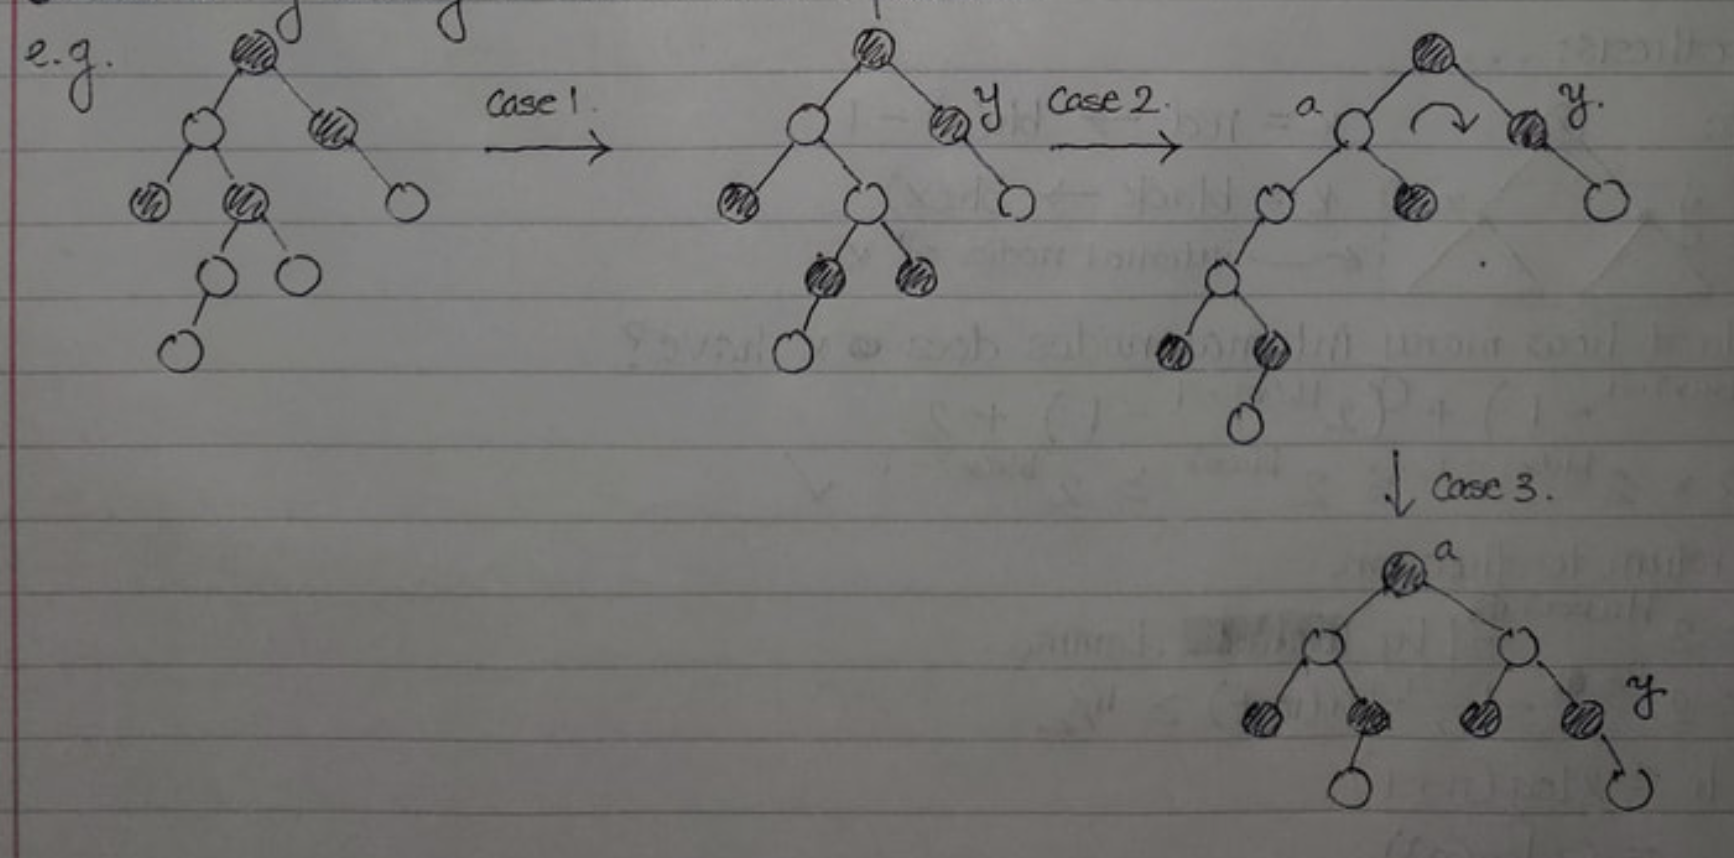 e.g.
Case 1.
y
Case 2.
a
y.
Case 3.
a
y